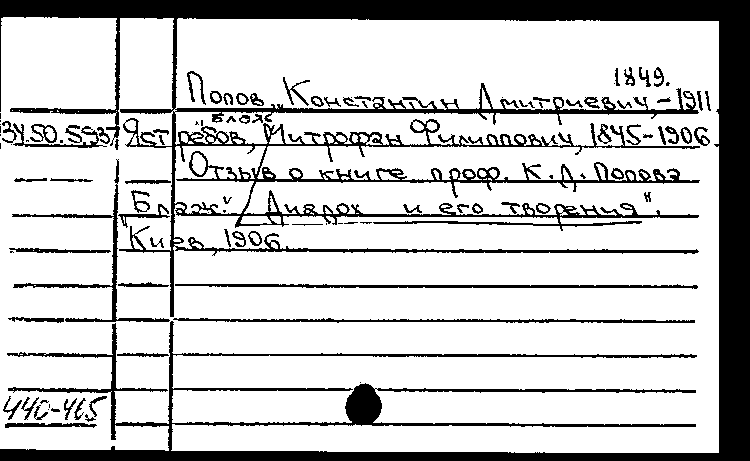 1849.
Попов, Константин Дмитриевич, -1911.
"Блаж
34.50.5937 Ястребов, Митрофан Филиппович, 1845-1906.
Отзыв о книге проф. К.Д. Попова
"Блаж." Диадох и его творения".
Киев, 1906.
440-465